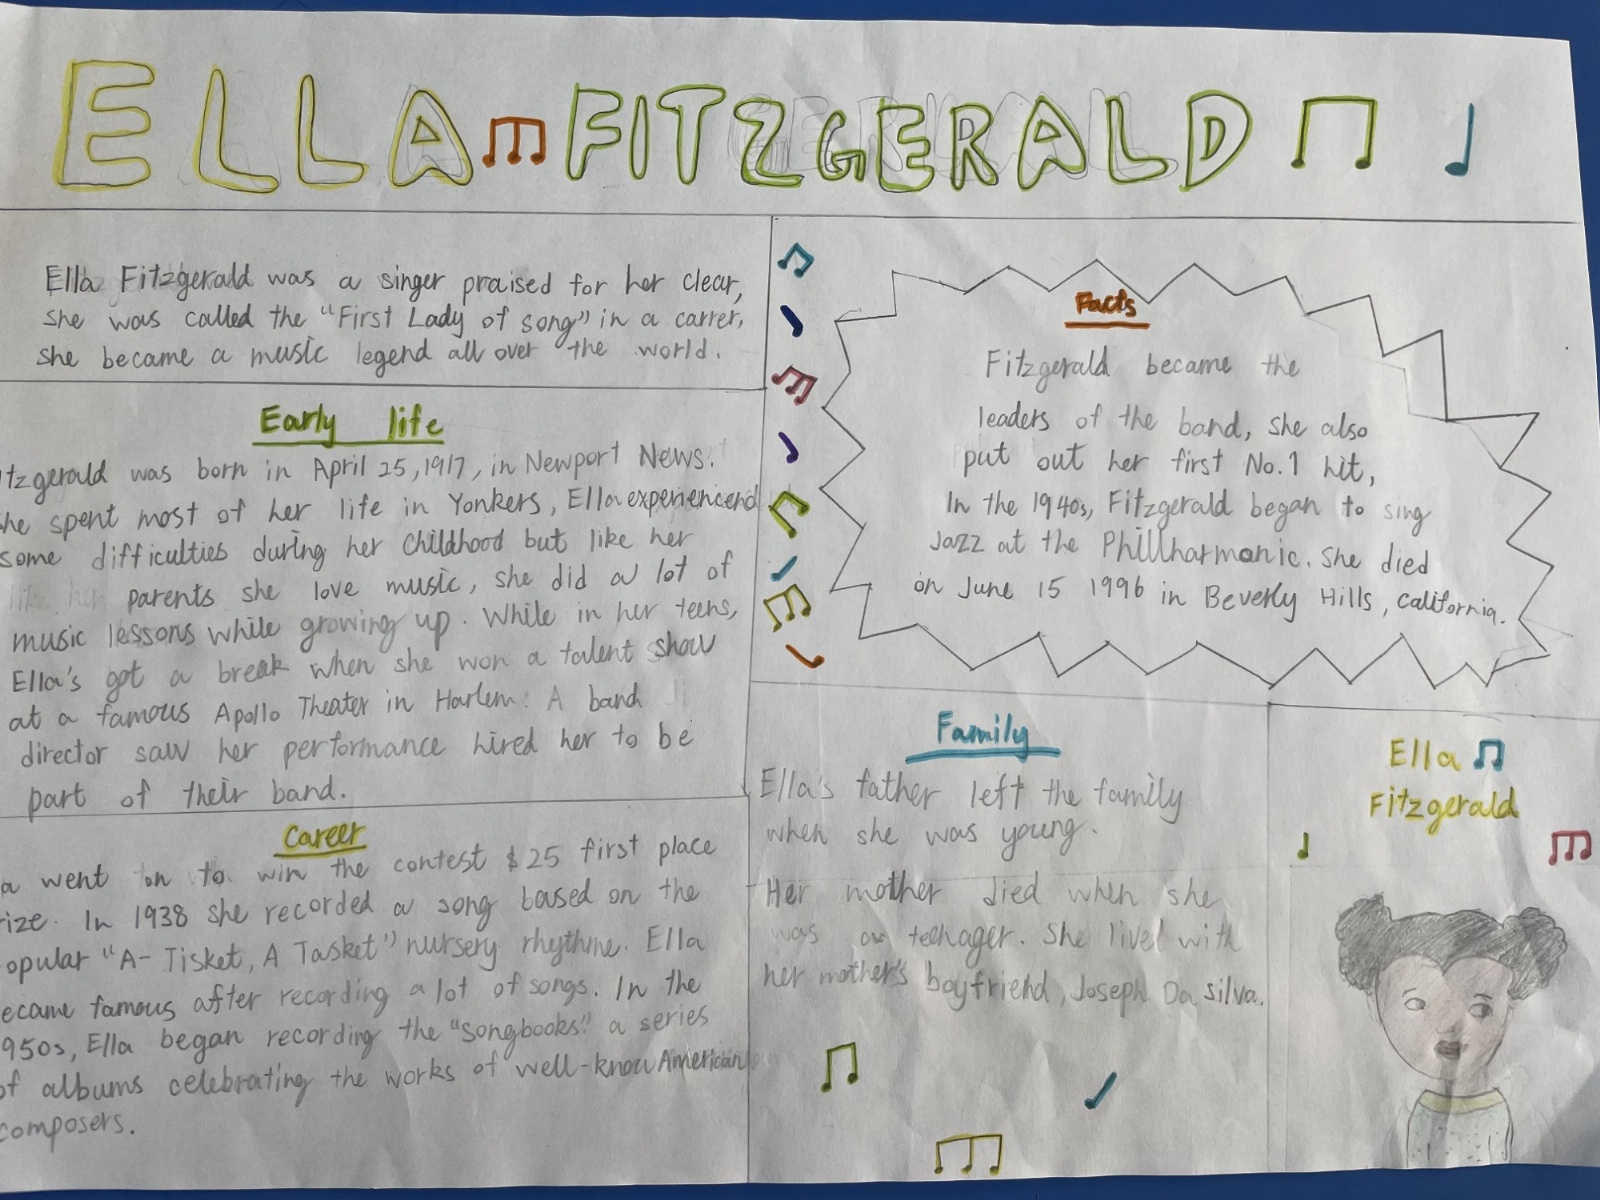 ELLA FITZGERALD
Ella Fitzgerald was a singer praised for her clear,
she was called the "First Lady of song" in a carrer,
she became a music legend all over the world.
Early life
itzgerald was born in April 25, 1917, in Newport News.
she spent most of her life in Yonkers, Ella experiencend
some difficulties during her childhood but like her
parents she love music, she did a lot of
music lessons while growing up. While in her teens,
Ella's got a break when she won a talent show
at a famous Apollo Theater in Harlem. A band
director saw her performance hired her to be
part of their band.
Career
a went on to win the contest $25 first place
rize. In 1938 she recorded a song based on the
opular "A-Tisket, A Tasket" nursery rhythme. Ella
ecame famous after recording a lot of songs. In the
950s, Ella began recording the "songbooks" a series
of albums celebrating the works of well-know American
composers.
Facts
Fitzgerald became the
leaders of the band, she also
put out her first No.1 hit,
In the 1940s, Fitzgerald began to sing
Jazz at the Phillharmonic. She died
on June 15 1996 in Beverly Hills, california.
Family
Ella's father left the family
when she was young.
Her mother died when she
was a teenager. She lived with
her mother's boyfriend, Joseph Da silva.
Ella
Fitzgerald